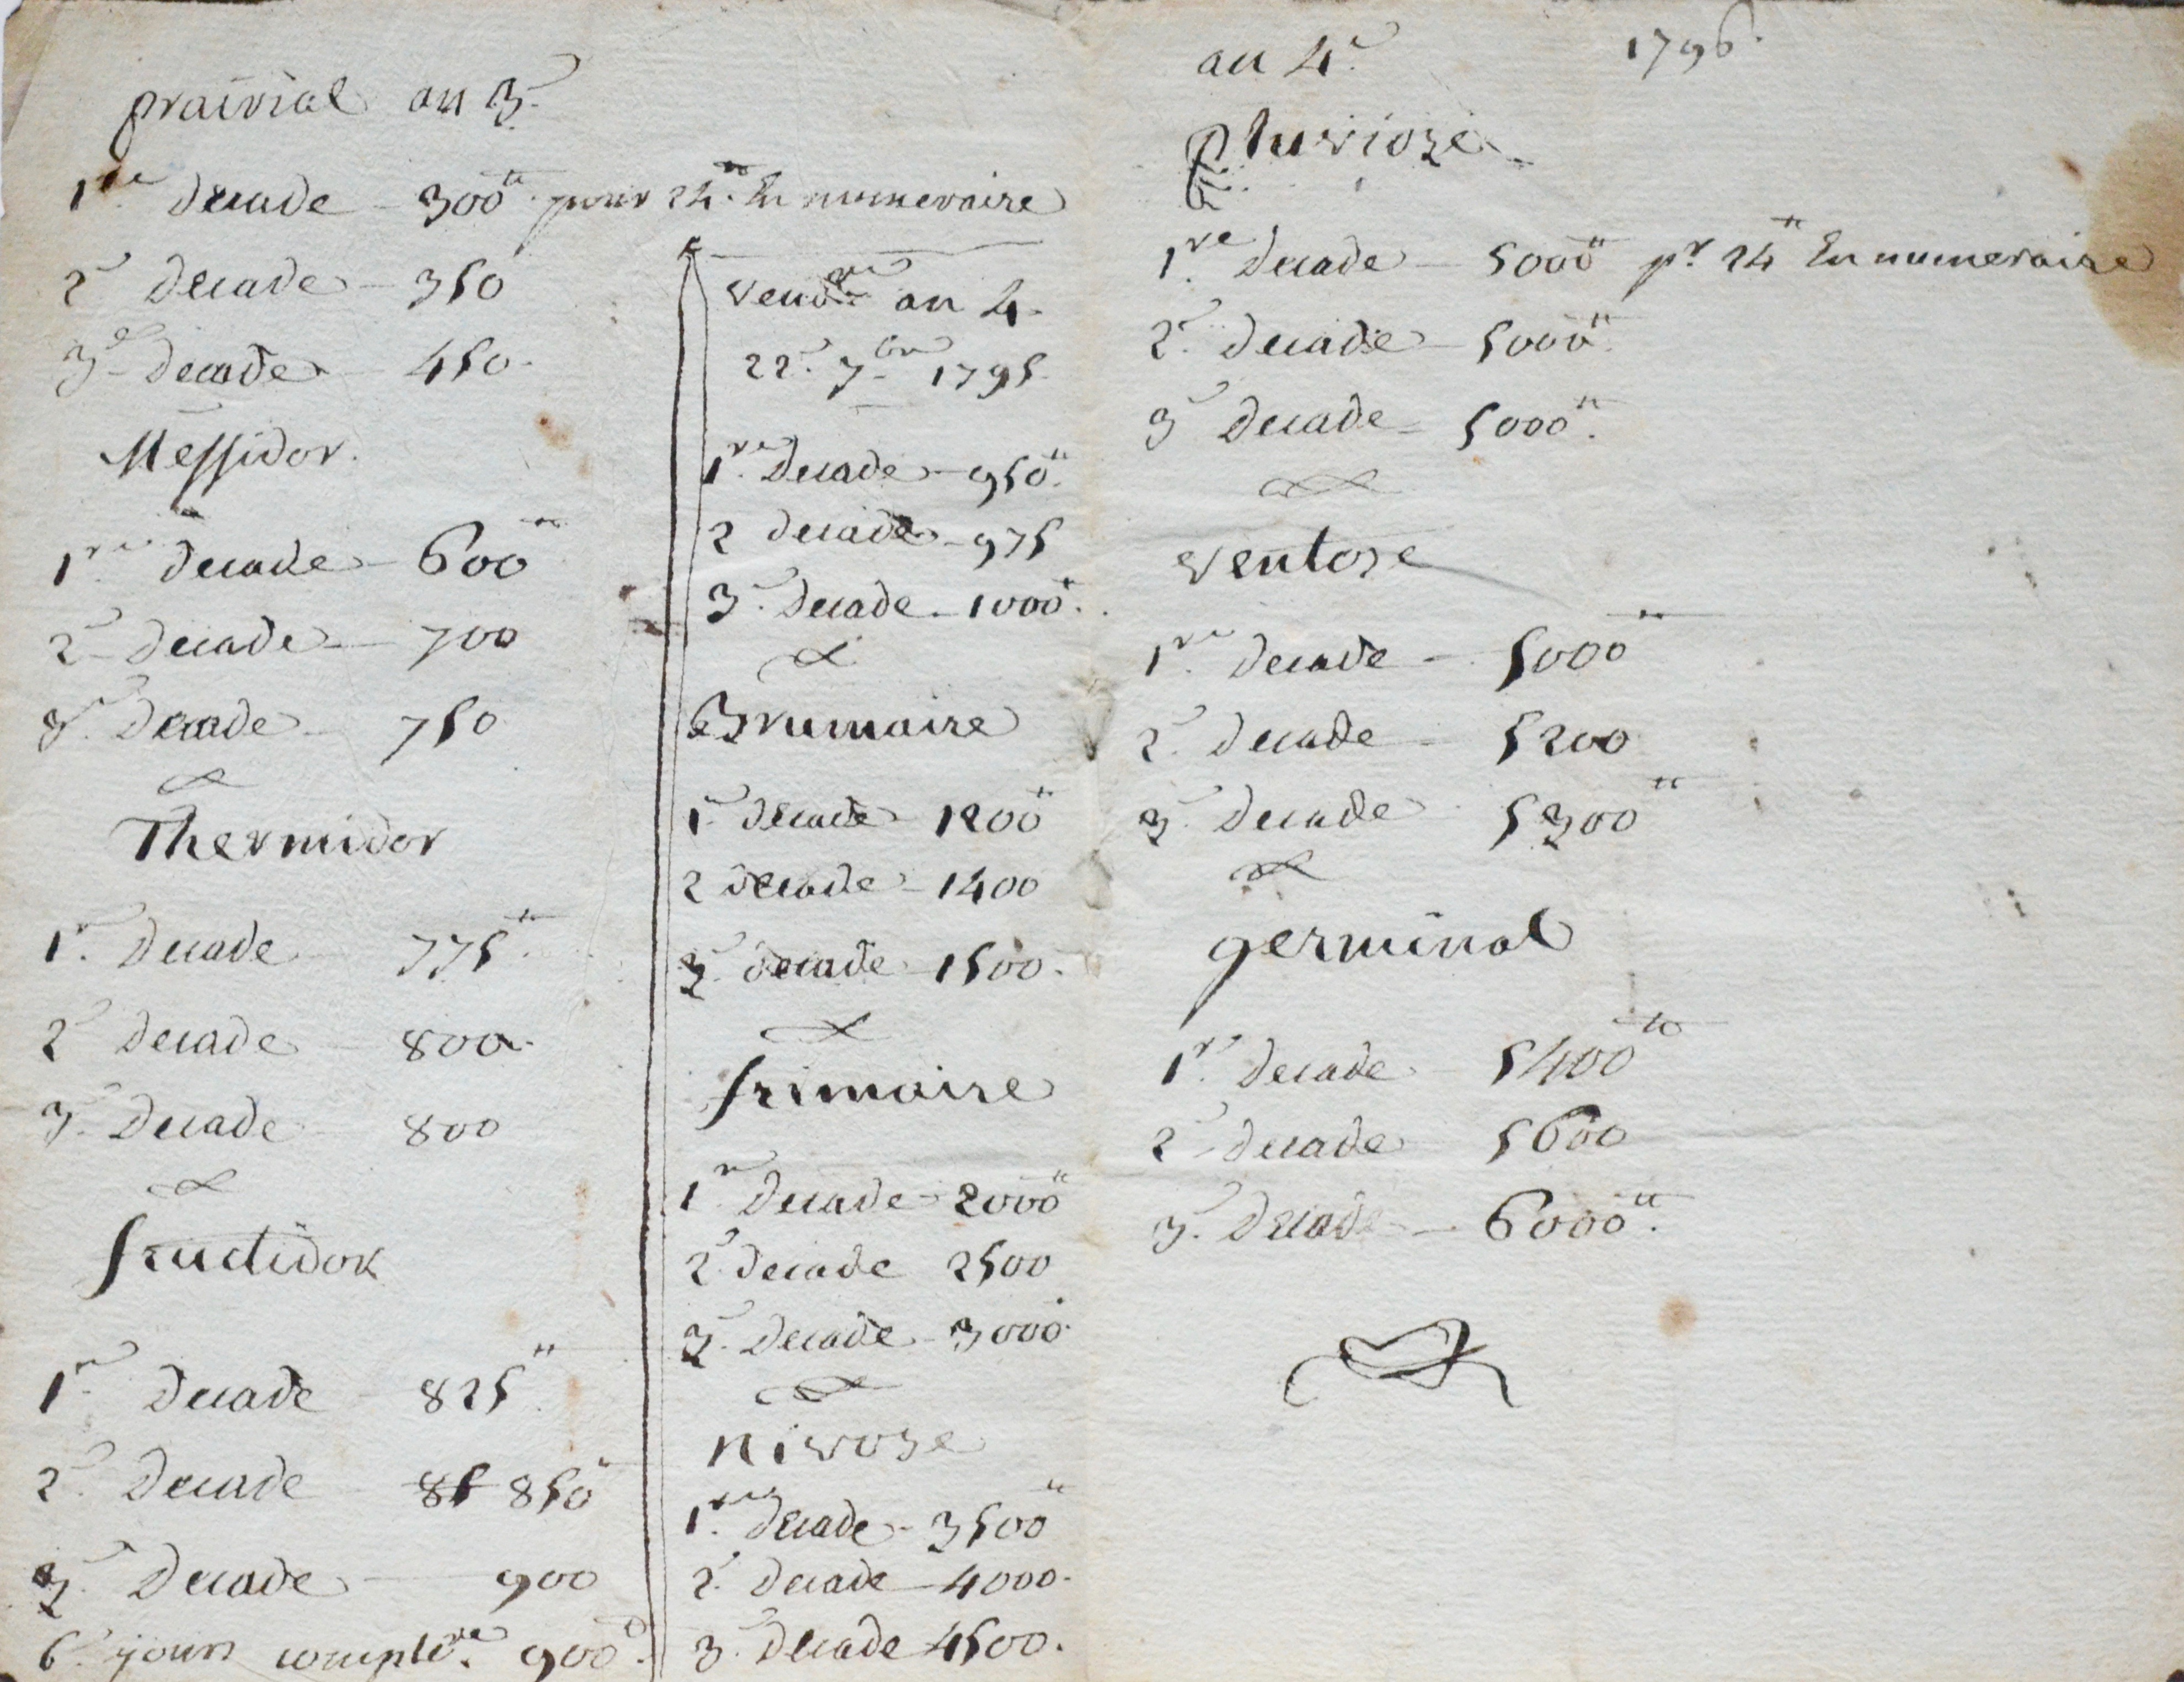 prairial an 3e
1re decade - 300tt pour 24tt En numeraire
2e decade - 350
3e decade - 450.
Messidor.
1re decade - 600tt
2e decade - 700
3e decade - 750
Thermidor
1re decade - 775tt
2e decade - 800.
3e decade - 800
fructidor
1re decade - 825tt
2e decade - 85 850tt
3e decade - 900
6e jours complre. 900tt.
Vendre an 4.
22e 7bre 1795.
1re decade - 950tt.
2 decade - 975
3e decade - 1000tt.
Brumaire
1re decade - 1200tt
2 decade - 1400
3e decade - 1500.
frimaire
1re decade - 2000tt
2e decade 2500
3e decade - 3000
nivoze
1re decade - 3500tt
2e decade - 4000.
3e decade 4500.
an 4e 1796.
pluvioze
1re decade - 5000tt pr 24tt En numeraire
2e decade - 5000tt
3e decade - 5000tt.
ventoze
1re decade - 5000tt
2e decade - 5200
3e decade - 5300tt
germinal
1re decade 5400tt
2e decade 5600
3e decade - 6000tt.